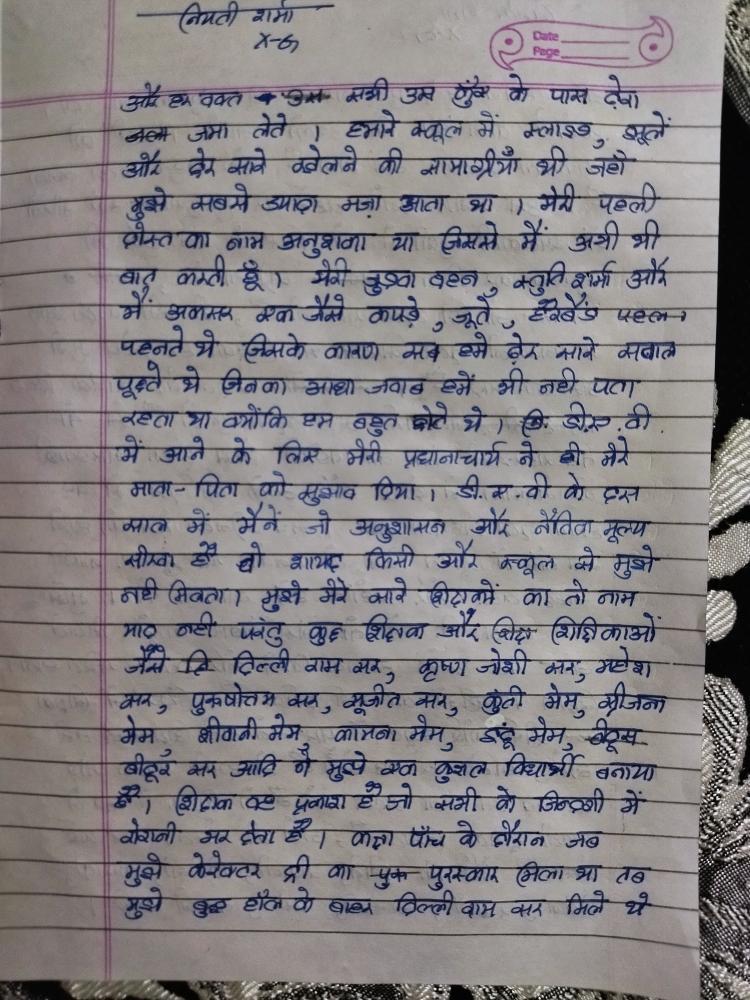 नियती शर्मा
X-G
Date
Page
और हर वक्त सभी उस झुंड के पास डेरा
जमा लेते । हमारे स्कूल में स्लाइड, झूलें
और ढेर सारे खेलने की सामाग्रीयाँ थी जहाँ
मुझे सबसे ज्यादा मज़ा आता था । मेरी पहली
दोस्त का नाम अनुशका था जिससे मैं अभी भी
बात करती हूँ । मेरी जुड़वा बहन, स्तुति शर्मा और
मैं अकसर एक जैसे कपड़े, जूते, हैरबैंड पहल
पहनते थे जिसके कारण सब हमे ढ़ेर सारे सवाल
पूछते थे जिनका आधा जवाब हमें भी नही पता
रहता था क्योंकि हम बहुत छोटे थे । डी.ए.वी
में आने के लिए मेरी प्रधानाचार्य ने ही मेरे
माता-पिता को सुझाव दिया । डी.ए.वी के दस
साल में मैनें जो अनुशासन और नैतिक मूल्य
सीखा है वो शायद किसी और स्कूल से मुझे
नही मिलता । मुझे मेरे सारे शिक्षकों का तो नाम
याद नही परंतु कुछ शिक्षक और शिक्षिकाओं
जैसे दिल्ली राम सर, कृष्ण जोशी सर, महेश
सर, पुरूषोत्तम सर, सूजीत सर, कुंती मेम, स्रीजना
मेम, शीवानी मेम, कामना मेम, इंदू मेम,
सर आदि ने मुझे एक कुशल विद्यार्थी बनाया
है । शिक्षक वह प्रकाश है जो सभी के जिन्दगी में
रोशनी भर देता है । कक्षा पाँच के दौरान जब
मुझे केरेक्टर ट्री का पुरस्कार मिला था तब
मुझे हॉल के बाहर दिल्ली राम सर मिले थे